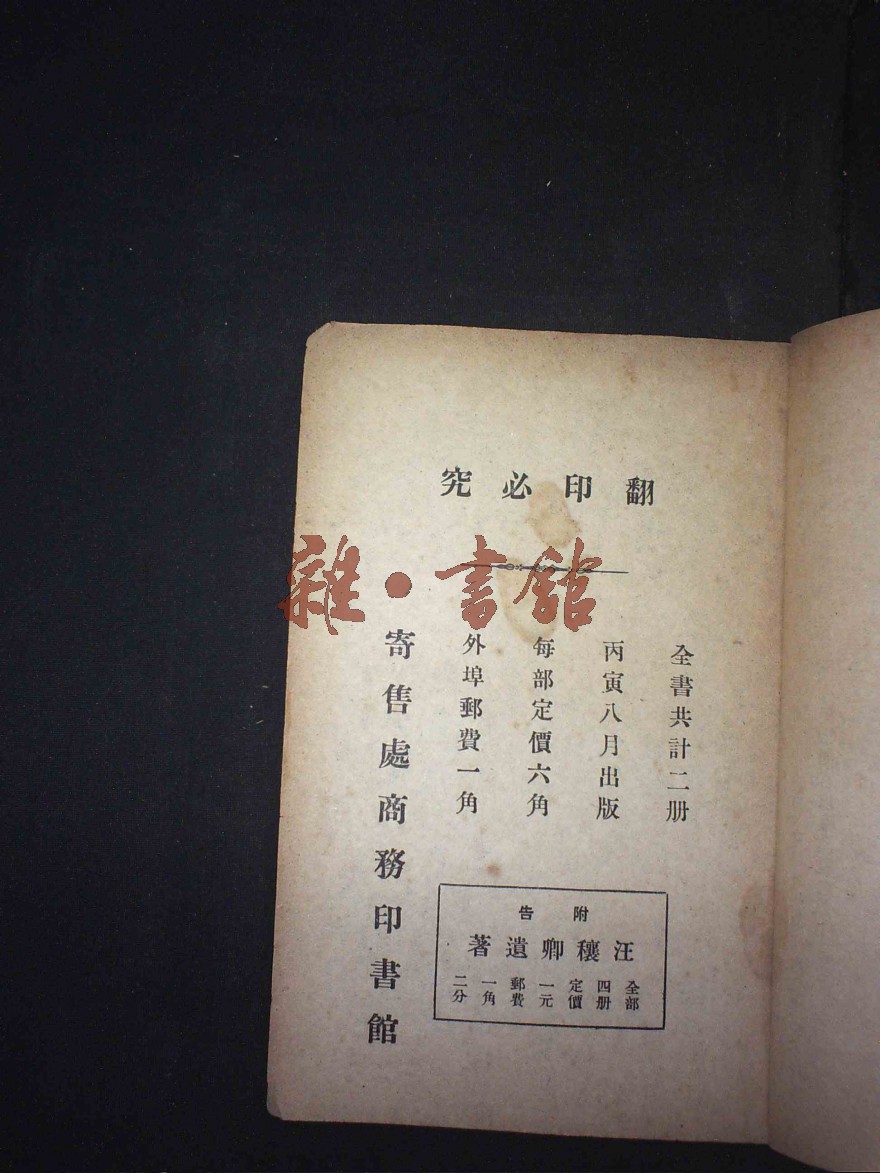 翻印必究
全書共計二册
丙寅八月出版
每部定價六角
外埠郵費一角
寄售處商務印書館
附告
汪穰卿遺著
全部
四册
定價
一元
郵費
一角
二分
雜·書館